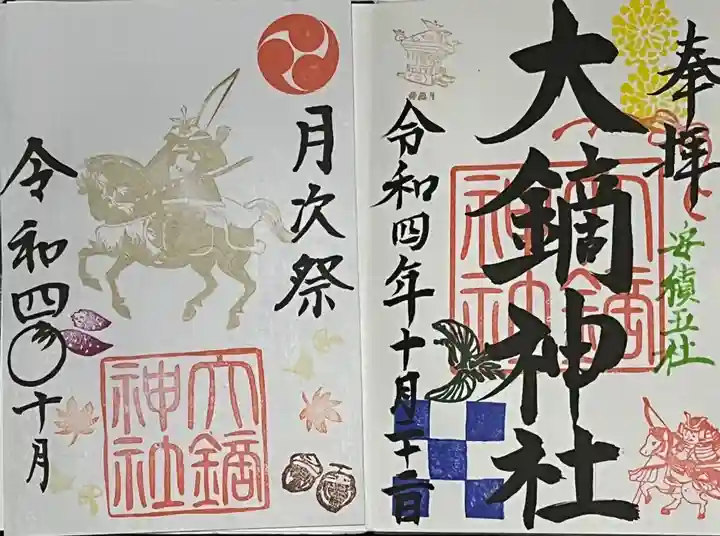 奉拝
安積五社
大鏑神社
大鏑神社
令和四年十月二十二日
月次祭
大鏑神社
令和四年十月